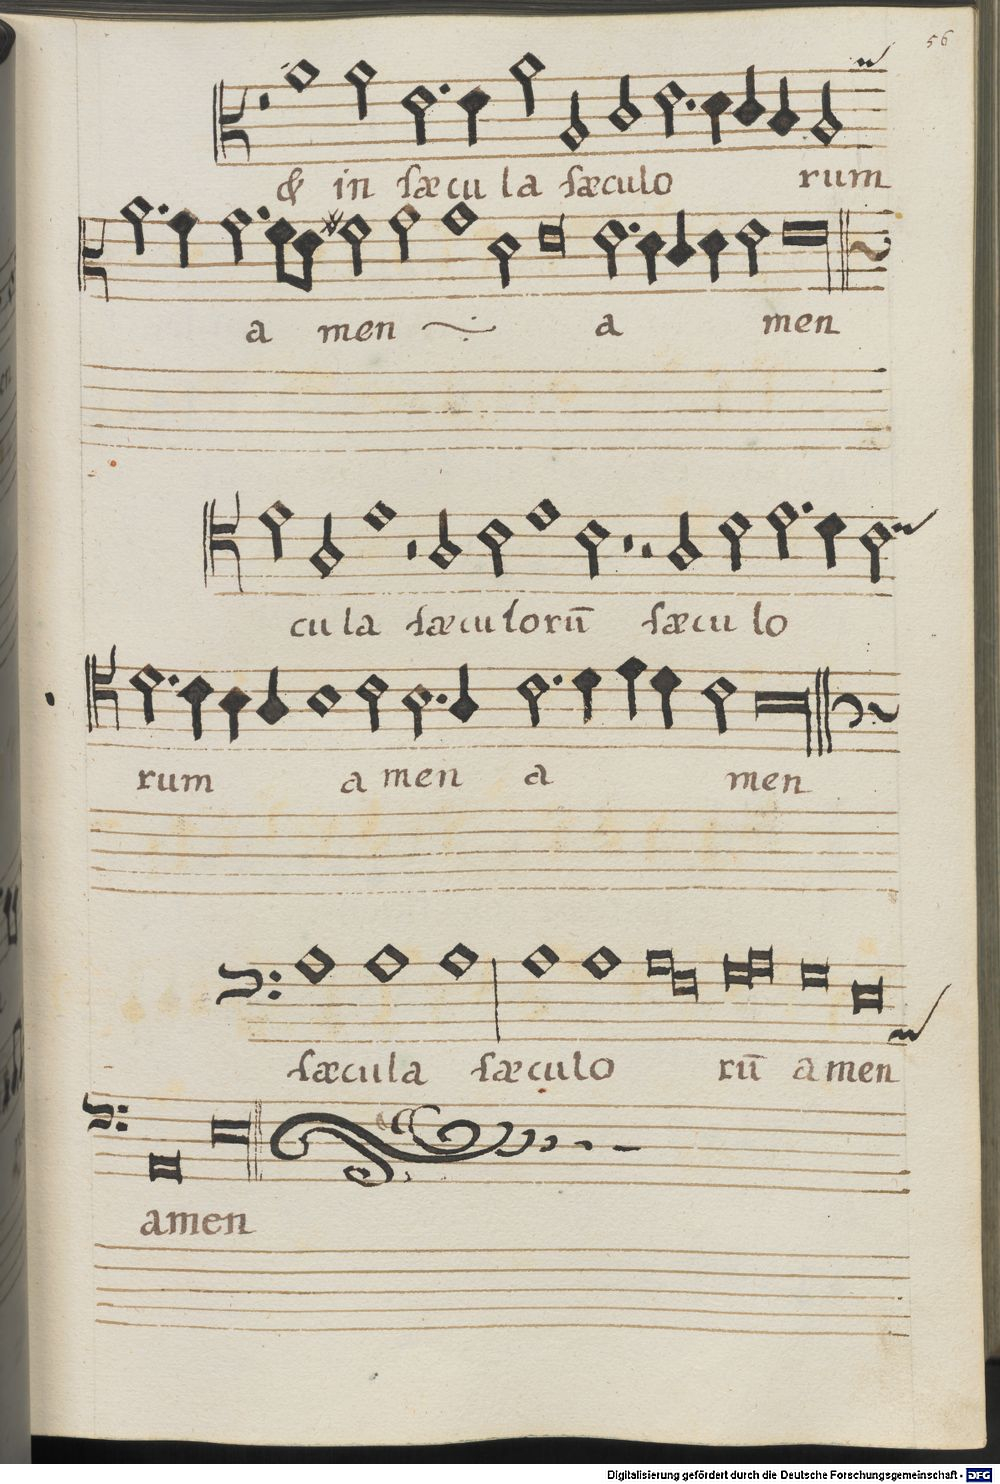 56
& in sæcula sæculo rum
a men a men
cula sæculorū sæculo
rum a men a men
sæcula sæculo rū amen
amen
Digitalisierung gefördert durch die Deutsche Forschungsgemeinschaft - DFG